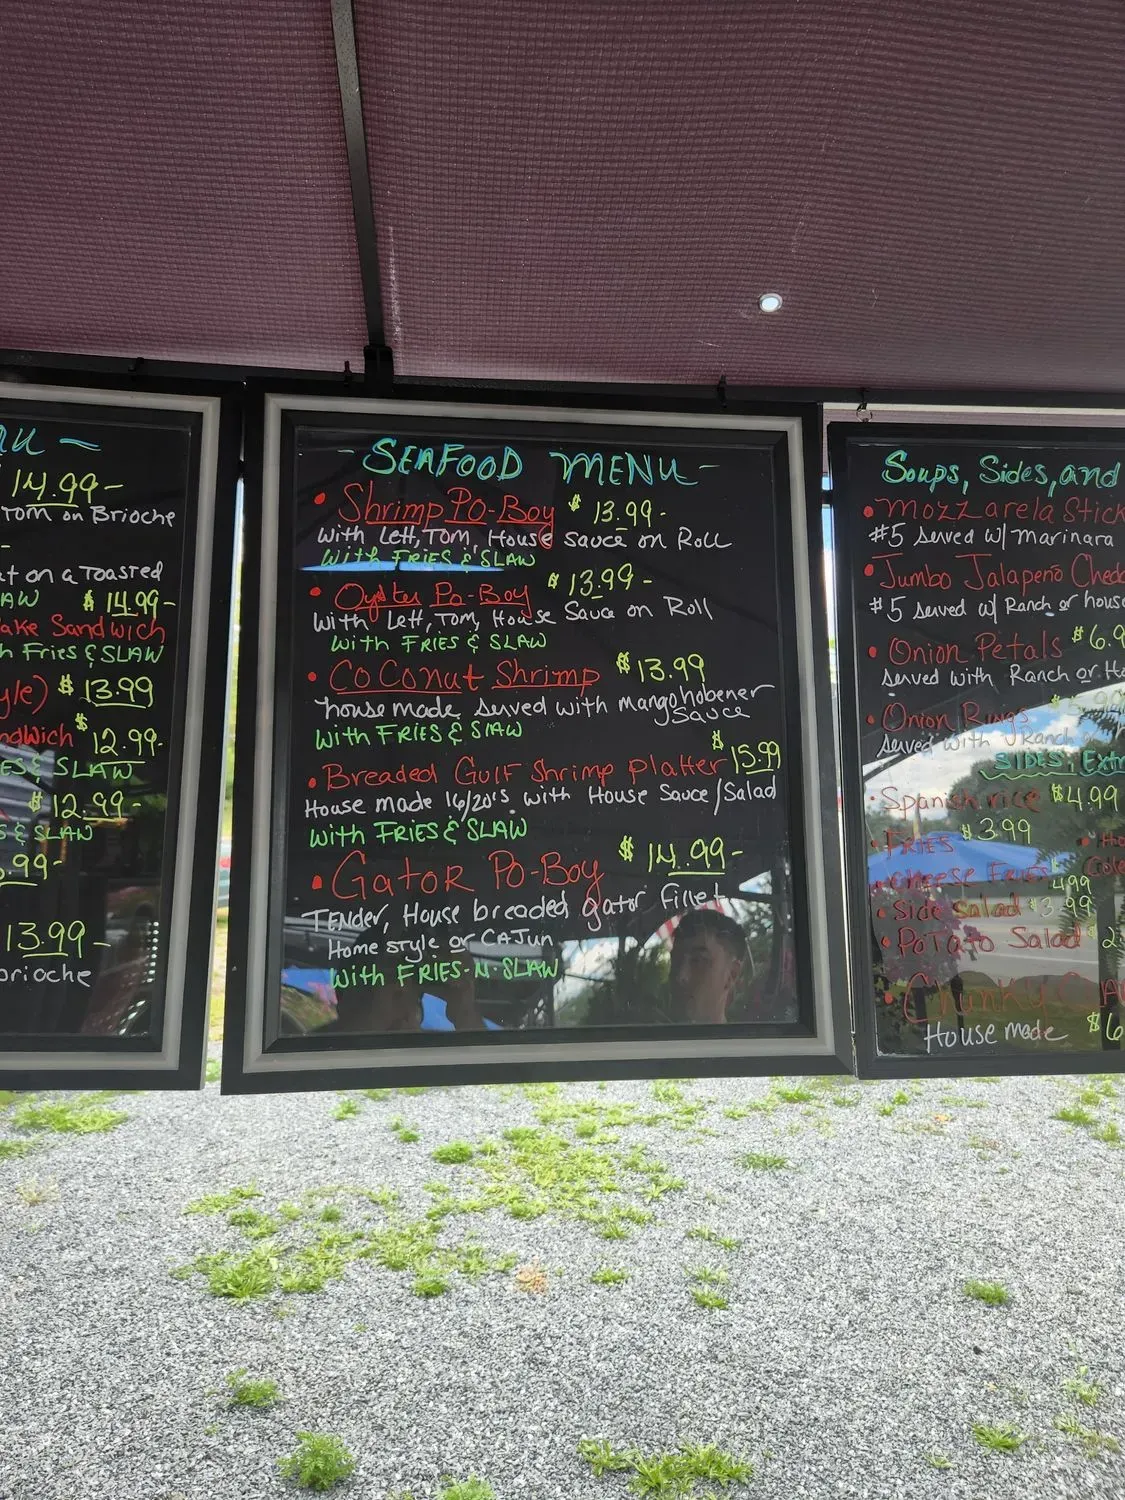 14.99-
TOM on Brioche
on a Toasted
$14.99-
Sandwich
Fries & SLAW
$13.99
$12.99-
& SLAW
$12.99-
& SLAW
.99-
13.99-
- SEAFOOD MENU -
• Shrimp PO-Boy $13.99-
with Lett, TOM, House sauce on Roll
With FRIES & SLAW
• Oyster Po-Boy $13.99-
With Lett, Tom, House Sauce on Roll
With FRIES & SLAW
• CoConut Shrimp $13.99
house made served with mangohobener
sauce
with FRIES & SLAW
• Breaded Gulf Shrimp platter $15.99
House made 16/20's with House Sauce/Salad
with FRIES & SLAW
• GatoR PO-BOY $14.99-
TENder, House breaded gator Fillet
Home style or CAJun
with FRIES-N-SLAW
Soups, Sides, and
• Mozzarela Stick
#5 served w/ marinara
• Jumbo Jalapeño Ched
#5 served w/ Ranch or house
• Onion Petals $6.9
served with Ranch or
• Onion Rings
served with Ranch
SIDES, Extr
• Spanish rice $4.99
• FRIES $3.99
• cheese Fries 4.99
• Side salad $3.99
• PoTaTo Salad $2
House made $6